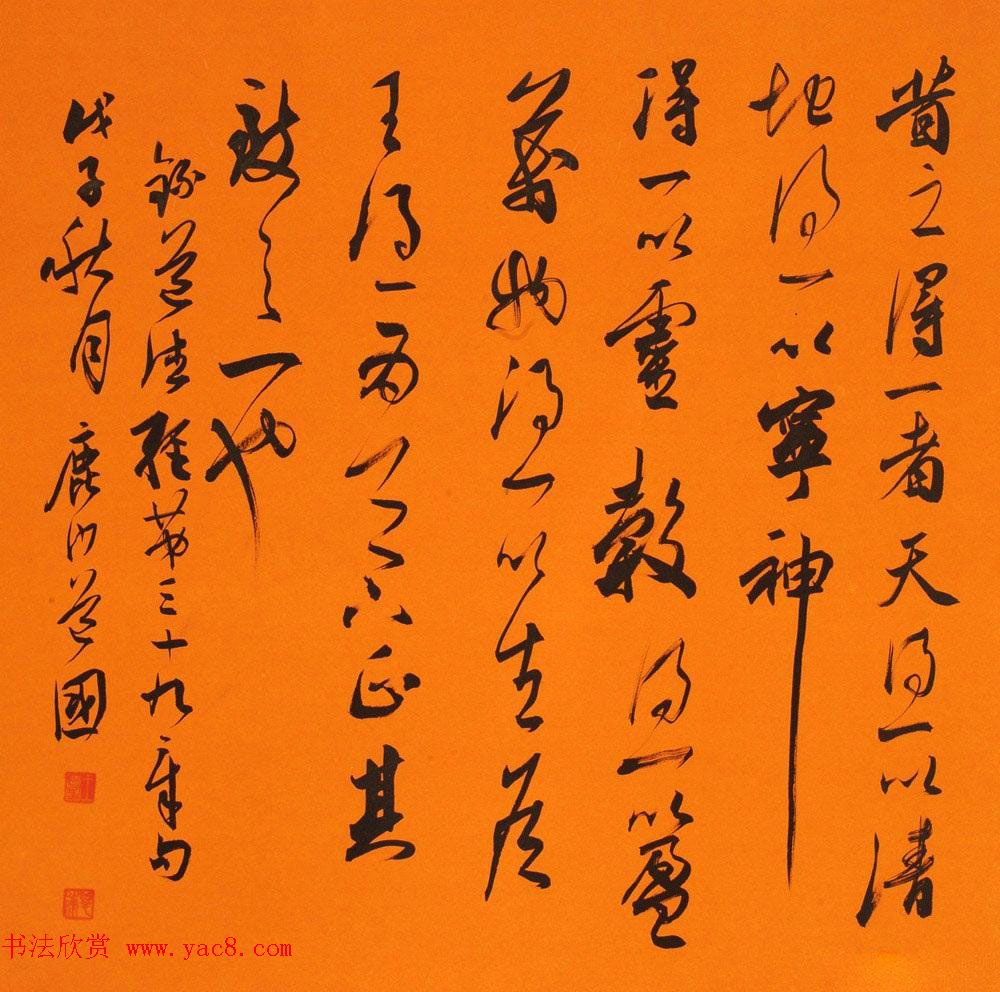 昔之得一者天得一以清
地得一以寧神
得一以靈穀得一以盈
萬物得一以生侯
王得一而以天下正其
致之一也
錄道德經第三十九章句
戊子秋月鹿道國
书法欣赏 www.yac8.com